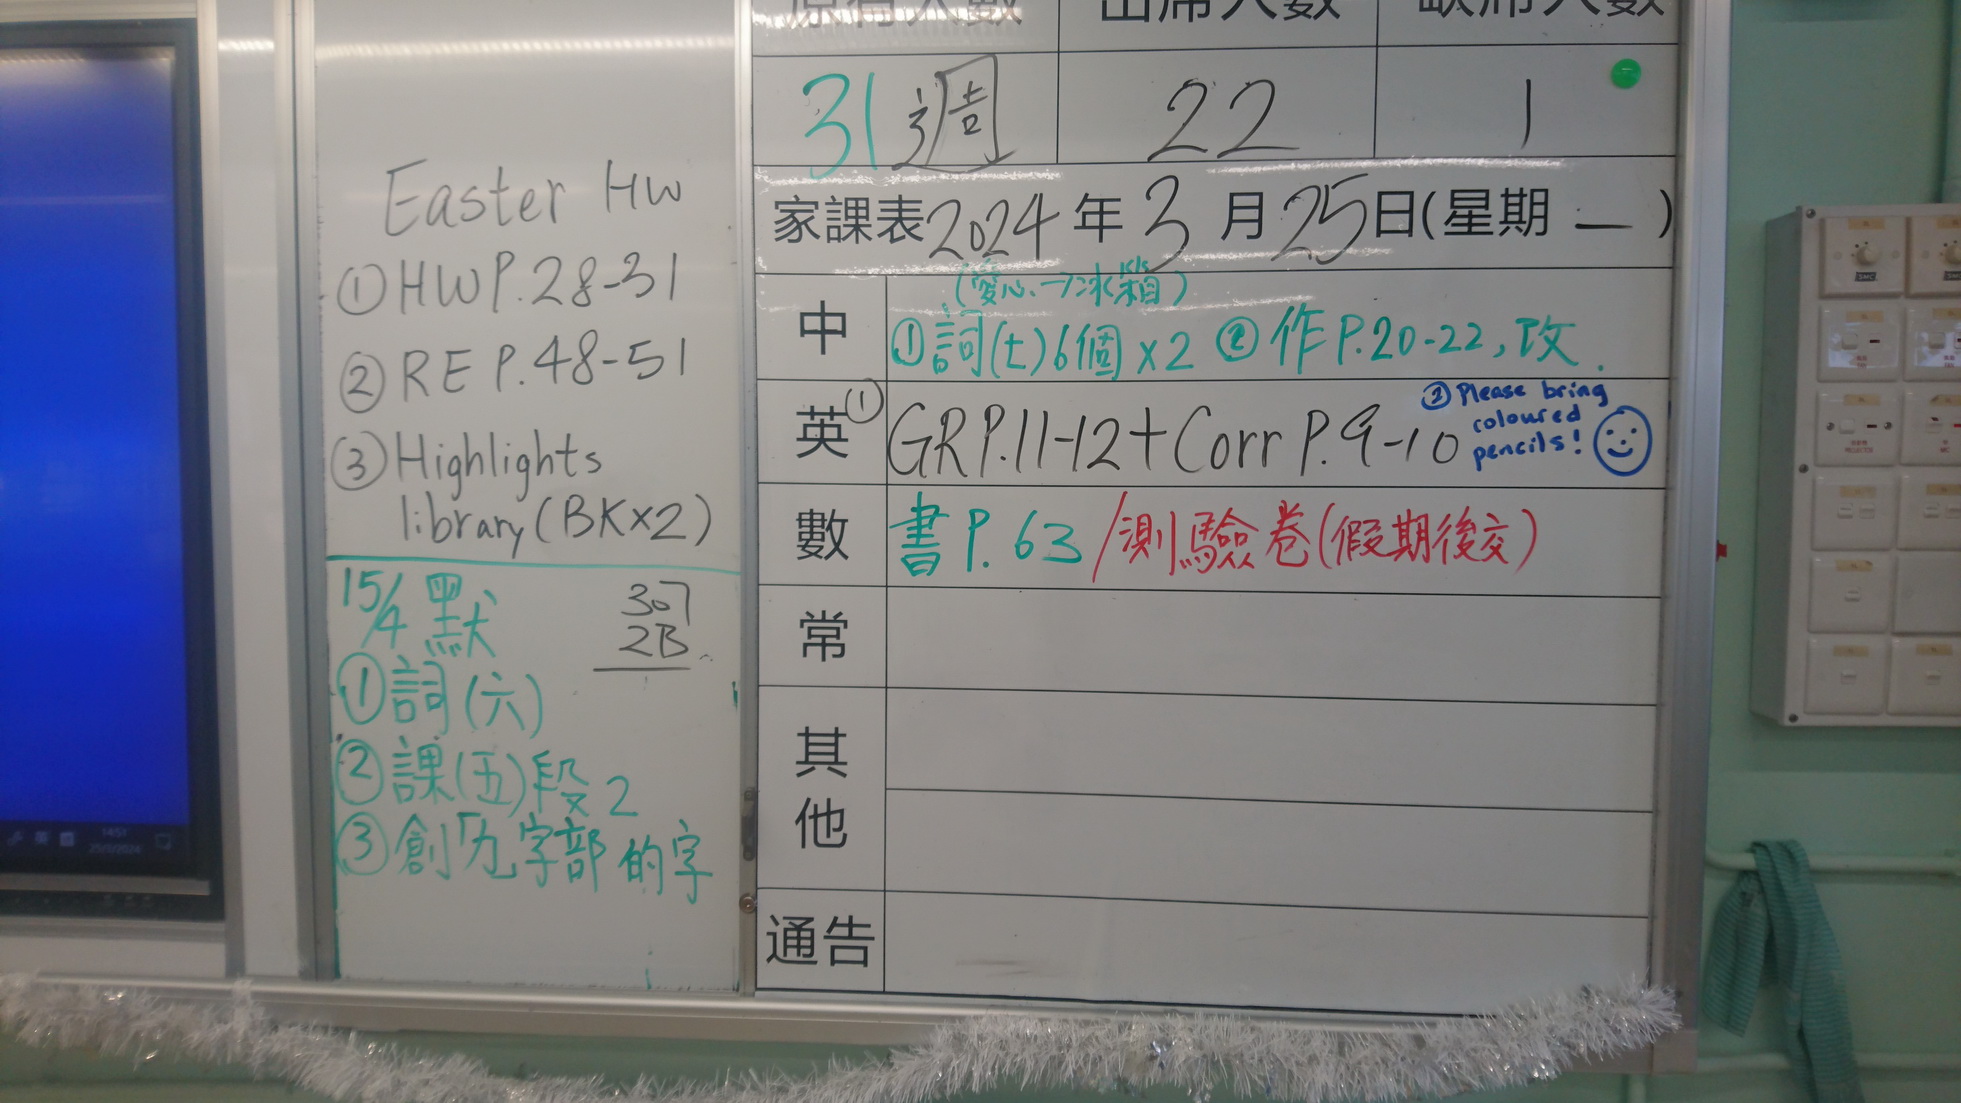 Easter HW
① HW P.28-31
② RE P.48-51
③ Highlights
library (BK×2)
15/4 默
307
2B
① 詞(六)
② 課(五)段2
③ 創 九 字部的字
原有人數 出席人數 缺席人數
31 週 22 1
家課表 2024 年 3 月 25 日(星期 一 )
(愛心→冰箱)
中 ① 詞(七)6個×2 ② 作P.20-22,改.
英 ① GR P.11-12 + Corr P.9-10 ② Please bring
coloured
pencils!
數 書 P.63 / 測驗卷(假期後交)
常
其
他
通告
14:51
25/3/2024